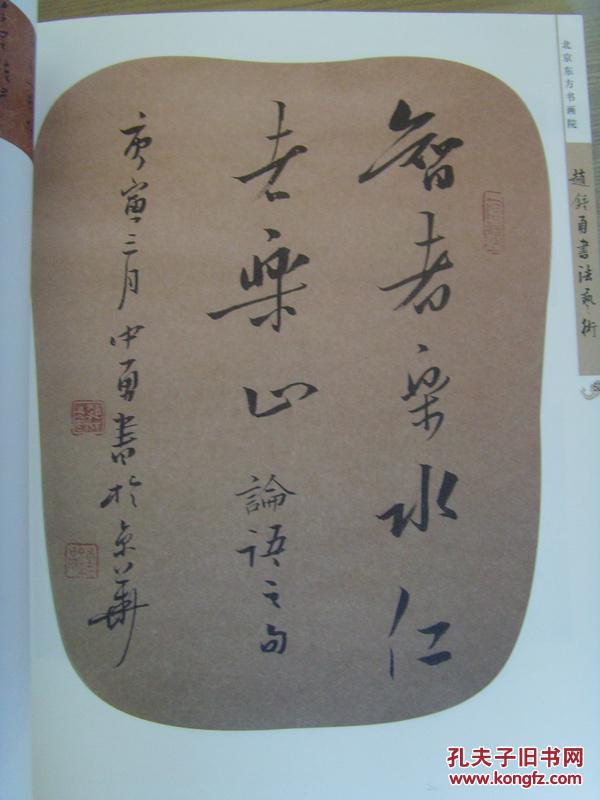 智者樂水仁
者樂山 論语之句
庚寅三月中勇書於京華
北京东方书画院
趙鍾勇書法藝術
孔夫子旧书网
www.kongfz.com